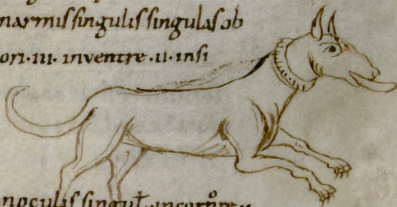 narmis singulis singulas ob
ori · iii · in ventre · ii · insi
noculis singul̄ in corn̊re ·